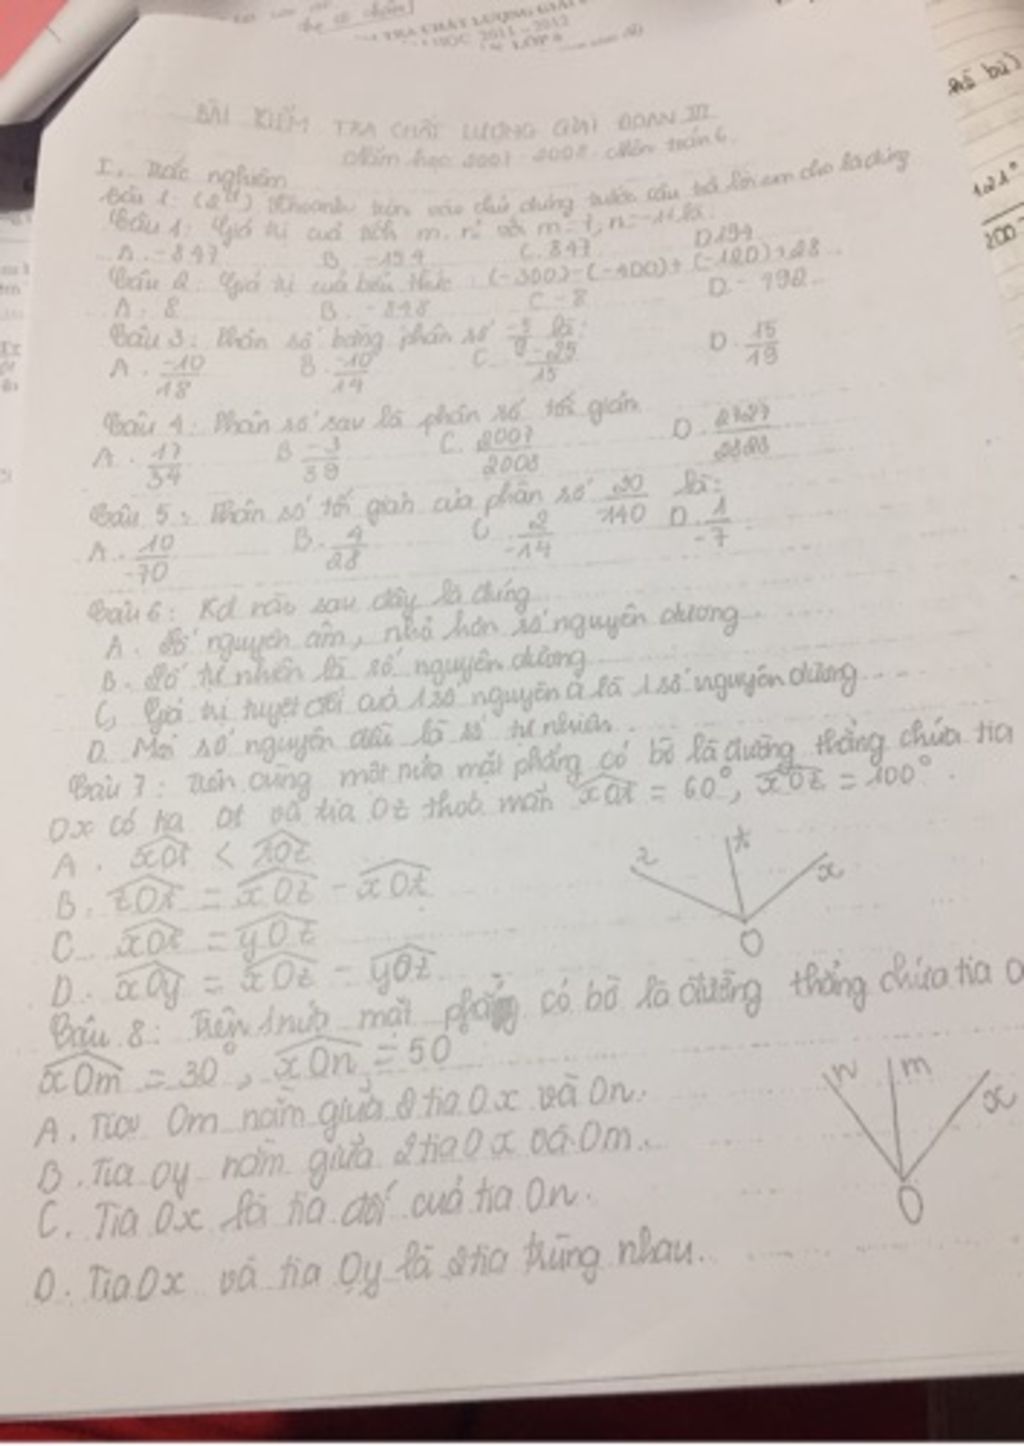 TRA CHẤT LƯỢNG GIAI
HỌC 2011 - 2012
LỚP 6
BÀI KIỂM TRA CHẤT LƯỢNG GIAI ĐOẠN III
Năm học 2007 - 2008. Môn toán 6.
I. Trắc nghiệm
Câu 1: (2đ) Khoanh tròn vào chữ đứng trước câu trả lời em cho là đúng
Câu 1: Giá trị của tích m. n² với m = 7, n = -11 là:
A. -847 B. -154 C. 847 D. 154
Câu 2: Giá trị của biểu thức: (-300)-(-400)+(-120)+28
A. 8 B. -848 C. -8 D. -192
Câu 3: Phân số bằng phân số -5/9 là:
A. -10/18 B. -10/14 C. -25/15 D. 15/19
Câu 4: Phân số sau là phân số tối giản
A. 17/34 B. -3/39 C. 2007/2008 D. 2727/2828
Câu 5: Phân số tối giản của phân số 20/-140 là:
A. 10/-70 B. 4/28 C. 2/-14 D. 1/-7
Câu 6: Kđ nào sau đây là đúng
A. Số nguyên âm, nhỏ hơn số nguyên dương
B. Số tự nhiên là số nguyên dương
C. Giá trị tuyệt đối của 1 số nguyên a là 1 số nguyên dương
D. Mọi số nguyên đều là số tự nhiên.
Câu 7: Trên cùng một nửa mặt phẳng có bờ là đường thẳng chứa tia
Ox có tia Ot và tia Oz thoả mãn xOt = 60°, xOz = 100°.
A. xOt < xOz
B. zOt = xOz - xOt
C. xOt = yOz
D. xOy = xOz - yOz
z t x
O
Câu 8: Trên 1 nửa mặt phẳng có bờ là đường thẳng chứa tia O
xOm = 30°, xOn = 50°
A. Tia Om nằm giữa 2 tia Ox và On.
B. Tia Oy nằm giữa 2 tia Ox và Om.
C. Tia Ox là tia đối của tia On.
D. Tia Ox và tia Oy là 2 tia trùng nhau.
n m x
O